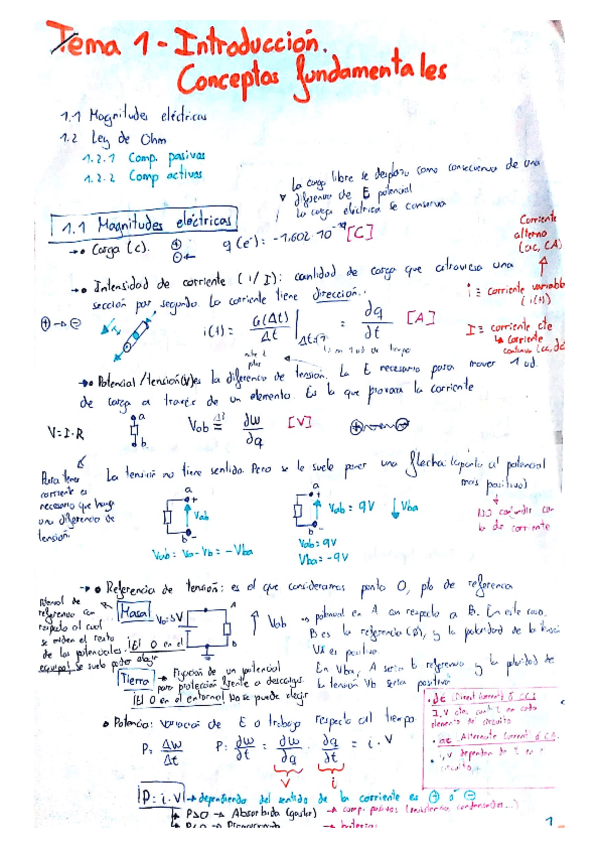 Tema 1 - Introducción.
Conceptos fundamentales
1.1 Magnitudes eléctricas
1.2 Ley de Ohm
1.2.1 Comp. pasivos
1.2.2 Comp activos
La carga libre se desplaza como consecuencia de una
diferencia de E potencial
La carga eléctrica se conserva
1.1 Magnitudes eléctricas
Carga (c). q(e⁻): -1,602·10⁻¹⁹ [C]
Corriente
alterna
(ac, CA)
Intensidad de corriente (i/I): cantidad de carga que atraviesa una
sección por segundo. La corriente tiene dirección.
i = corriente variable
(i(t))
i(t) = Δt = dq/dt [A]
I = corriente cte
corriente
continua (cc, dc)
Potencial/tensión(V) es la diferencia de tensión. La E necesaria para mover 1 ud.
de carga a través de un elemento. Es lo que provoca la corriente
V=I·R
a
b
Vab = dw/dq [V]
La tensión no tiene sentido. Pero se le suele poner una flecha (apunta al potencial
más positivo)
Para tener
corriente es
necesario que haya
una diferencia de
tensión
NO confundir con
la de corriente
a
Vab
b
Vab = Va-Vb = -Vba
a
Vab = 9V
Vba
b
Vab = 9V
Vba = -9V
Referencia de tensión: es el que consideramos punto 0, pto de referencia
Masa
referencia con
respecto al cual
se miden el resto
de los potenciales. El 0 en el
equipo, se suele poder elegir
Vo=5V
A
B
Vab
potencial en A con respecto a B. En este caso,
B es la referencia (0), y la polaridad de la tensión
es positiva.
En Vba, A sería la referencia y la polaridad de
la tensión Vb sería positiva
Tierra
Fijación de un potencial
para protección frente a descargas.
El 0 en el entorno. No se puede elegir
dc (Direct Current) ó CC
I, V ctes en cada
elemento de circuito
ac Alternate Current ó CA
i, V dependen de t en
circuito
Potencia: variación de E o trabajo respecto al tiempo
P = ΔW/Δt P = dw/dt = dw/dq · dq/dt = i·V
V i
P = i·V dependiendo del sentido de la corriente es ⊕ ó ⊖
P>0 → Absorbida (gastar) → comp. pasivos (resistencia, condensadores...)
P<0 → baterías
1